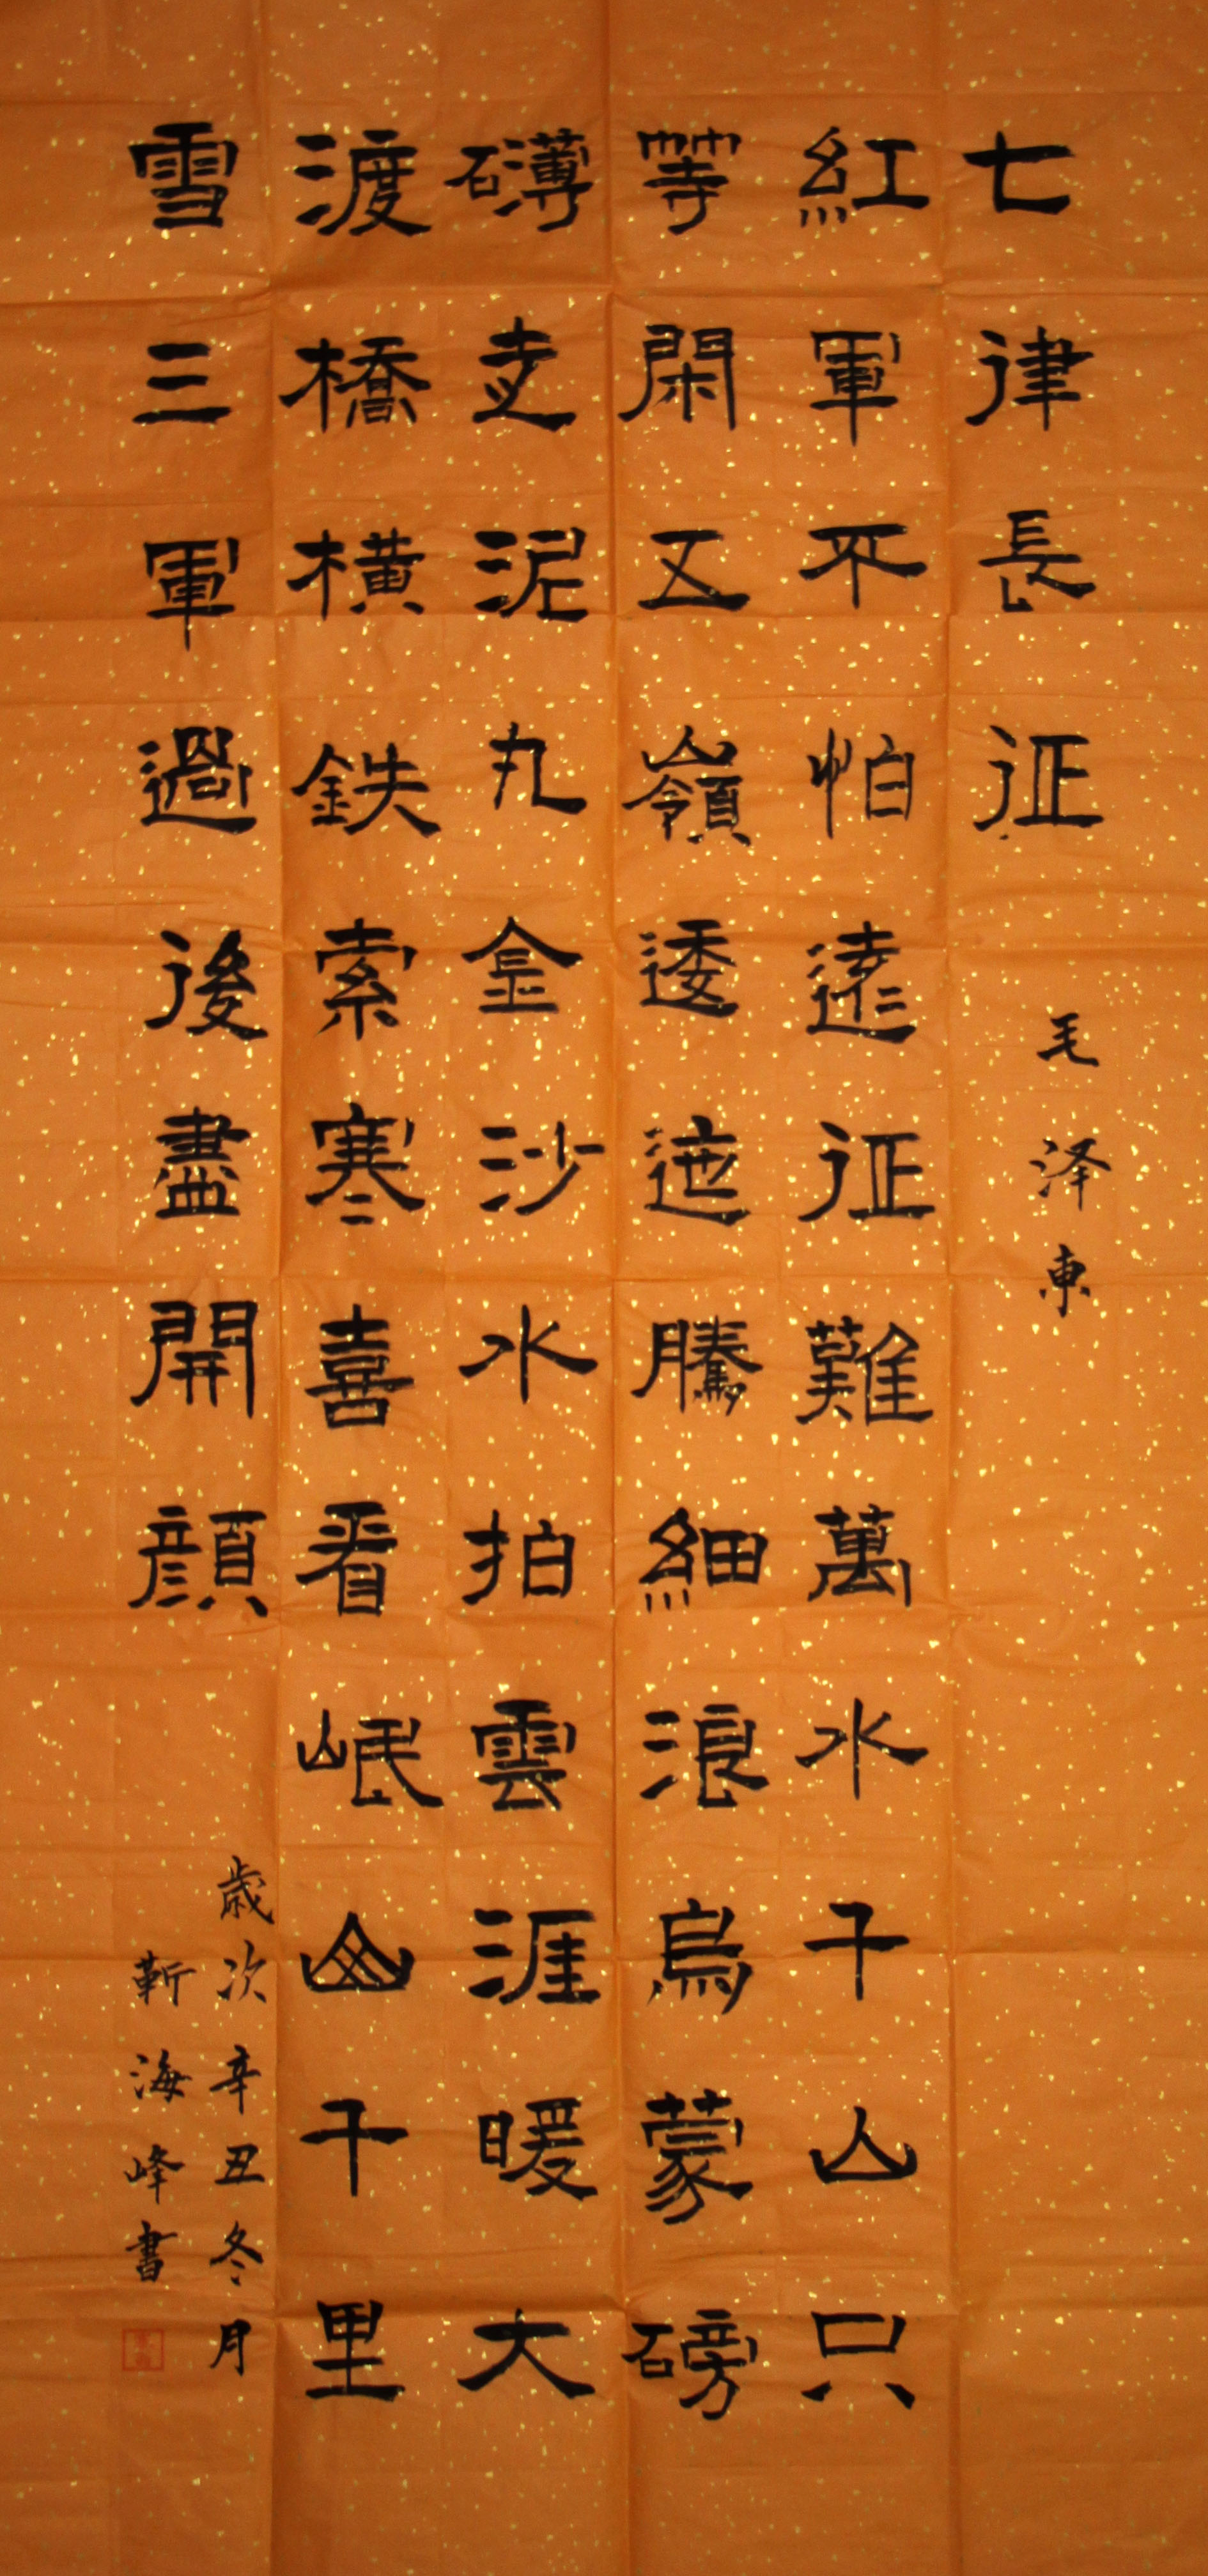 七律長征
毛泽東
紅軍不怕遠征難萬水千山只
等閑五嶺逶迤騰細浪烏蒙磅
礴走泥丸金沙水拍雲涯暖大
渡橋橫鉄索寒喜看岷山千里
雪三軍過後盡開顔
歲次辛丑冬月
靳海峰書